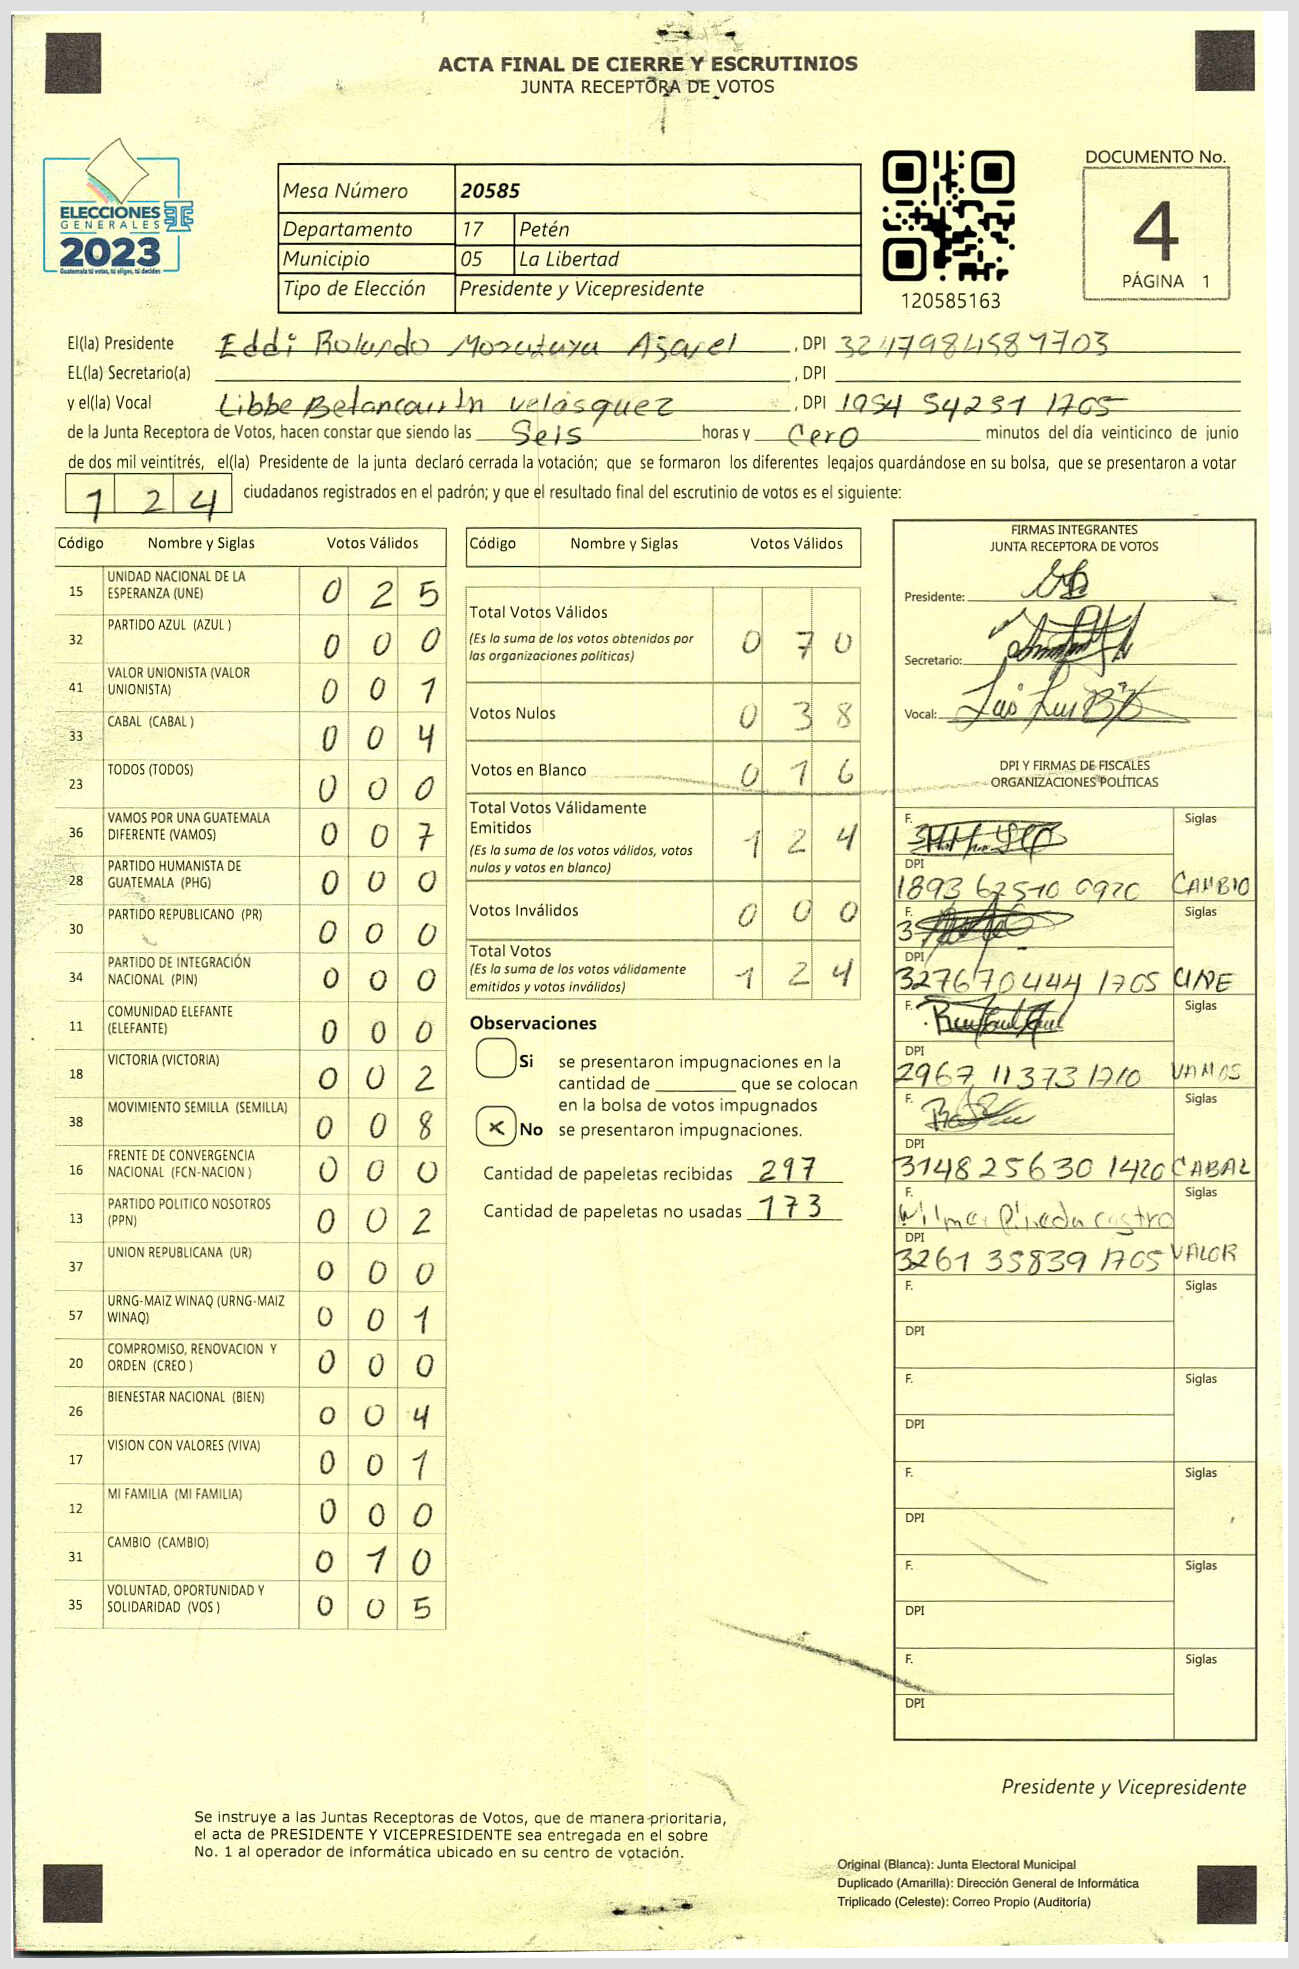 ACTA FINAL DE CIERRE Y ESCRUTINIOS
JUNTA RECEPTORA DE VOTOS
ELECCIONES
GENERALES
2023
Guatemala tú votas, tú eliges, tú decides
Mesa Número 20585
Departamento 17 Petén
Municipio 05 La Libertad
Tipo de Elección Presidente y Vicepresidente
120585163
DOCUMENTO No.
4
PÁGINA 1
El(la) Presidente Eddi Rolando , DPI
EL(la) Secretario(a) , DPI
y el(la) Vocal Libbe Velásquez , DPI 1954 54231 1705
de la Junta Receptora de Votos, hacen constar que siendo las Seis horas y Cero minutos del día veinticinco de junio
de dos mil veintitrés, el(la) Presidente de la junta declaró cerrada la votación; que se formaron los diferentes legajos quardándose en su bolsa, que se presentaron a votar
124 ciudadanos registrados en el padrón; y que el resultado final del escrutinio de votos es el siguiente:
Código Nombre y Siglas Votos Válidos
15 UNIDAD NACIONAL DE LA ESPERANZA (UNE) 0 2 5
32 PARTIDO AZUL (AZUL ) 0 0 0
41 VALOR UNIONISTA (VALOR UNIONISTA) 0 0 1
33 CABAL (CABAL ) 0 0 4
23 TODOS (TODOS) 0 0 0
36 VAMOS POR UNA GUATEMALA DIFERENTE (VAMOS) 0 0 7
28 PARTIDO HUMANISTA DE GUATEMALA (PHG) 0 0 0
30 PARTIDO REPUBLICANO (PR) 0 0 0
34 PARTIDO DE INTEGRACIÓN NACIONAL (PIN) 0 0 0
11 COMUNIDAD ELEFANTE (ELEFANTE) 0 0 0
18 VICTORIA (VICTORIA) 0 0 2
38 MOVIMIENTO SEMILLA (SEMILLA) 0 0 8
16 FRENTE DE CONVERGENCIA NACIONAL (FCN-NACION ) 0 0 0
13 PARTIDO POLITICO NOSOTROS (PPN) 0 0 2
37 UNION REPUBLICANA (UR) 0 0 0
57 URNG-MAIZ WINAQ (URNG-MAIZ WINAQ) 0 0 1
20 COMPROMISO, RENOVACION Y ORDEN (CREO ) 0 0 0
26 BIENESTAR NACIONAL (BIEN) 0 0 4
17 VISION CON VALORES (VIVA) 0 0 1
12 MI FAMILIA (MI FAMILIA) 0 0 0
31 CAMBIO (CAMBIO) 0 1 0
35 VOLUNTAD, OPORTUNIDAD Y SOLIDARIDAD (VOS ) 0 0 5
Código Nombre y Siglas Votos Válidos
Total Votos Válidos 0 7 0
(Es la suma de los votos obtenidos por
las organizaciones políticas)
Votos Nulos 0 3 8
Votos en Blanco 0 1 6
Total Votos Válidamente
Emitidos 1 2 4
(Es la suma de los votos válidos, votos
nulos y votos en blanco)
Votos Inválidos 0 0 0
Total Votos 1 2 4
(Es la suma de los votos válidamente
emitidos y votos inválidos)
Observaciones
Si se presentaron impugnaciones en la
cantidad de ________ que se colocan
en la bolsa de votos impugnados
x No se presentaron impugnaciones.
Cantidad de papeletas recibidas 297
Cantidad de papeletas no usadas 173
FIRMAS INTEGRANTES
JUNTA RECEPTORA DE VOTOS
Presidente:
Secretario:
Vocal:
DPI Y FIRMAS DE FISCALES
ORGANIZACIONES POLÍTICAS
F. Siglas
DPI
1893 62510 0920 CAMBIO
F. Siglas
DPI
327670444 1705 UNE
F. Siglas
DPI
2967 11373 1710 VAMOS
F. Siglas
DPI
3148 25630 1420 CABAL
F. Wilmer Pineda castro Siglas
DPI
3261 35839 1705 VALOR
F. Siglas
DPI
F. Siglas
DPI
F. Siglas
DPI
F. Siglas
DPI
F. Siglas
DPI
Presidente y Vicepresidente
Se instruye a las Juntas Receptoras de Votos, que de manera prioritaria,
el acta de PRESIDENTE Y VICEPRESIDENTE sea entregada en el sobre
No. 1 al operador de informática ubicado en su centro de votación.
Original (Blanca): Junta Electoral Municipal
Duplicado (Amarilla): Dirección General de Informática
Triplicado (Celeste): Correo Propio (Auditoría)